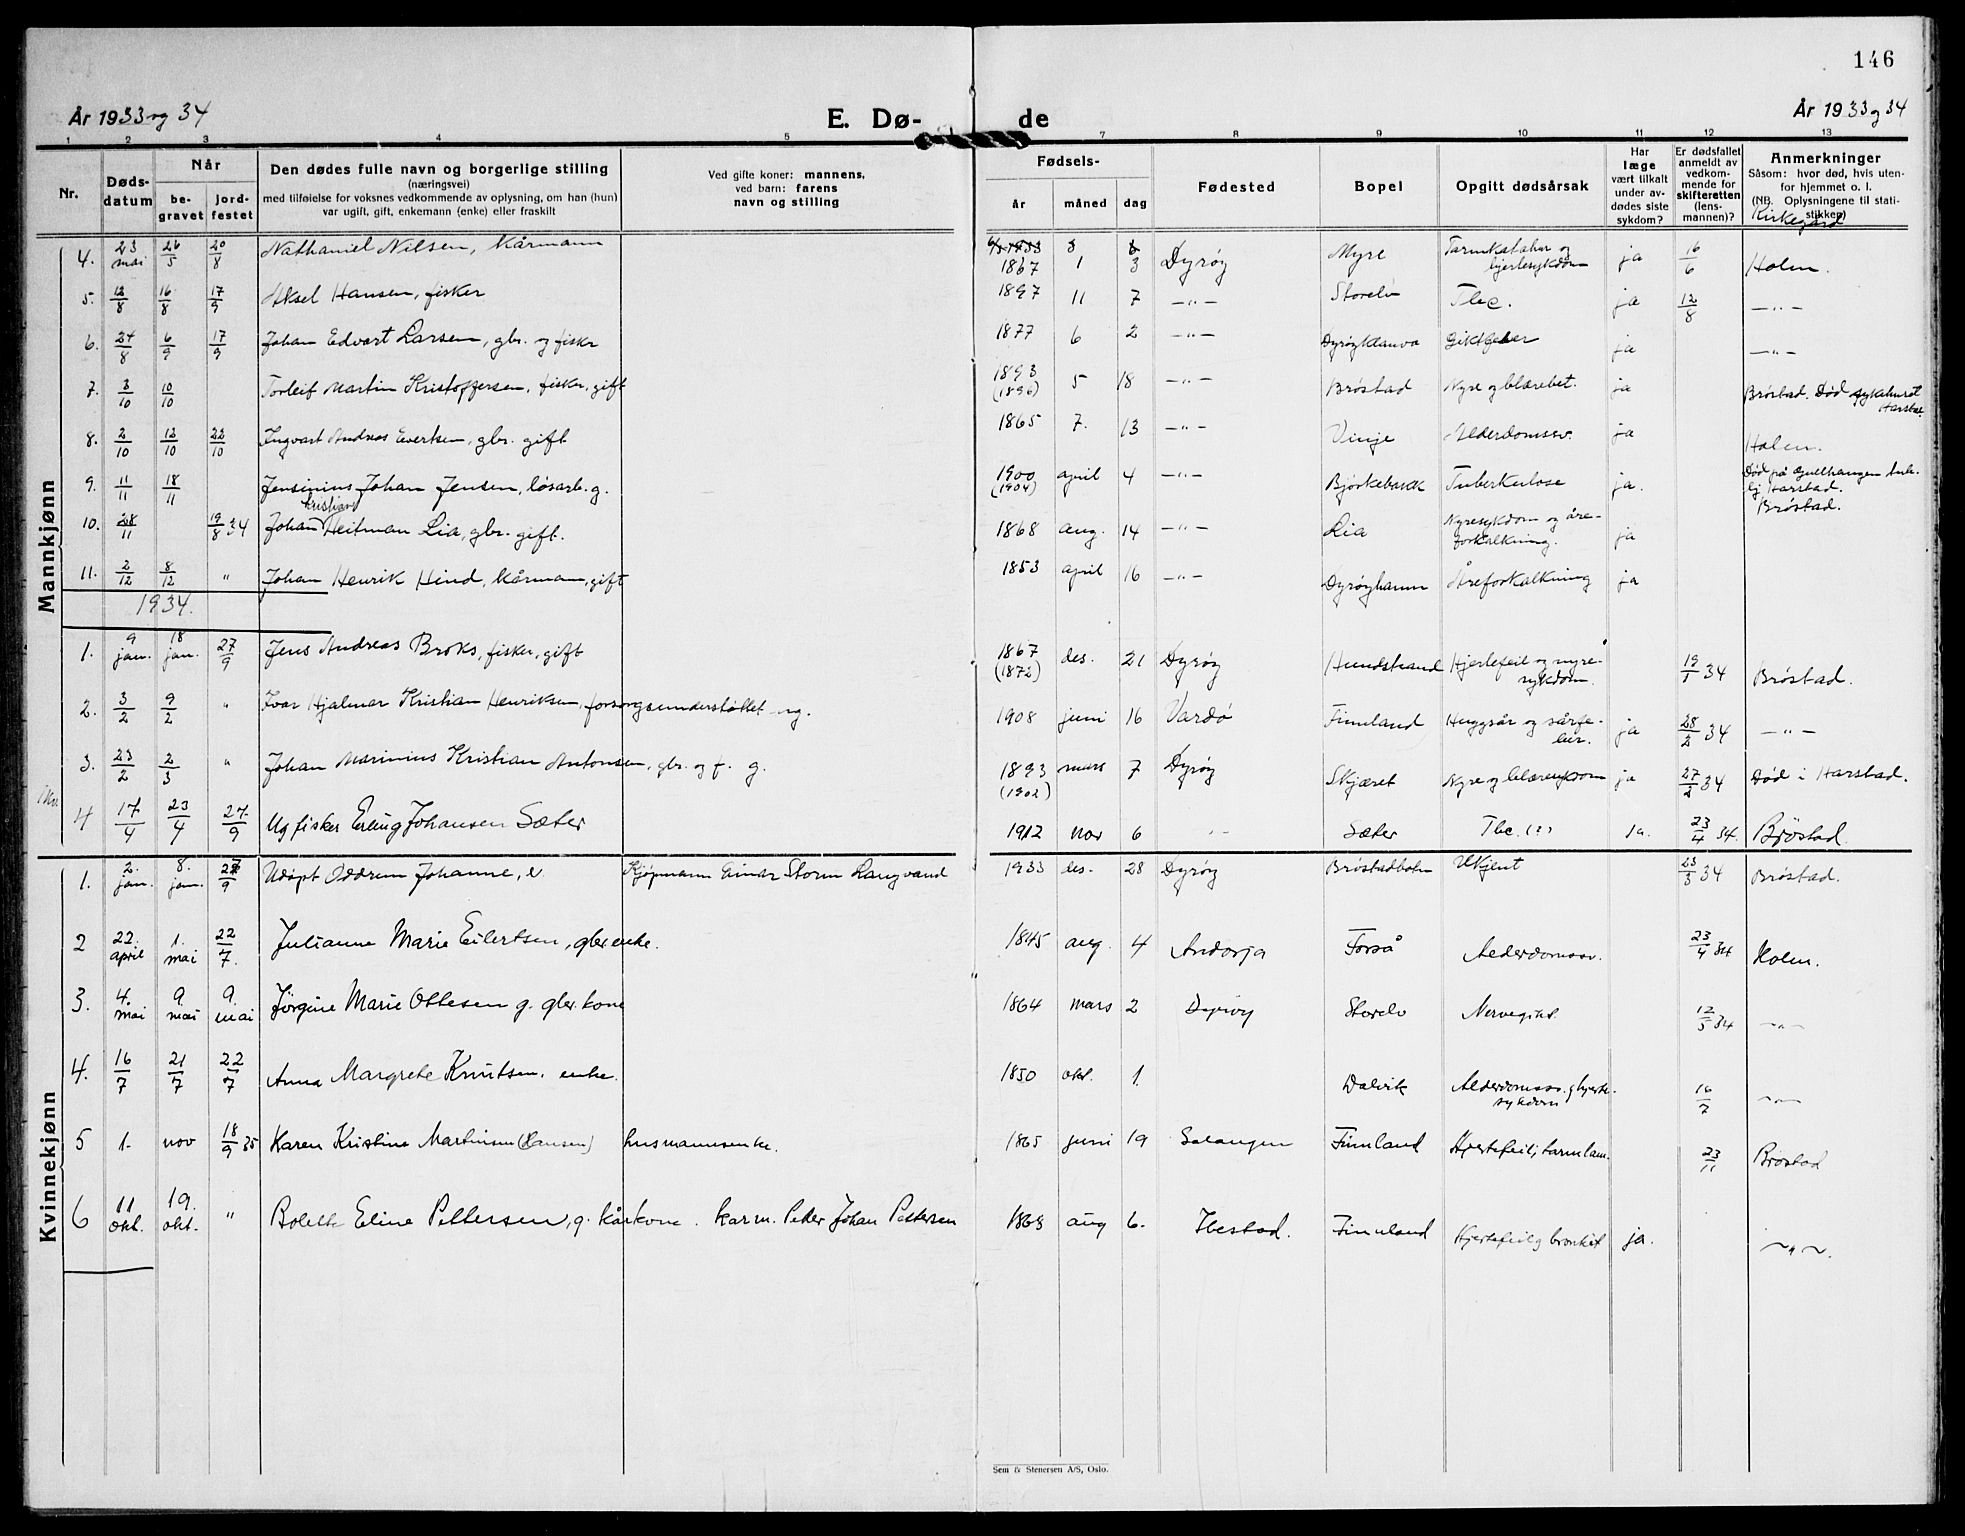 146
År 1933 og 34
E. Dø-
de
År 1933 og 34
1 2 3 4 5 7 8 9 10 11 12 13
Nr.
Døds-
datum
Når
be-
gravet
jord-
festet
Den dødes fulle navn og borgerlige stilling
(næringsvei)
med tilføielse for voksnes vedkommende av oplysning, om han (hun)
var ugift, gift, enkemann (enke) eller fraskilt
Ved gifte koner: mannens,
ved barn: farens
navn og stilling
Fødsels-
år måned dag
Fødested
Bopel
Opgitt dødsårsak
Har
læge
vært tilkalt
under av-
dødes siste
sykdom?
Er dødsfallet
anmeldt av
vedkom-
mende for
skifteretten
(lens-
mannen)?
Anmerkninger
Såsom: hvor død, hvis uten-
for hjemmet o. l.
(NB. Oplysningene til stati-
stikken)
Kirkegård
Mannkjønn
4. 23 mai 26/5 20/8 Nathaniel Nilsen, kårmann 1867 1 3 Dyrøy Myre Tarmkatahr og hjertesykdom ja 6/6 Holm.
5. 12/8 16/8 17/9 Aksel Hansen, fisker 1897 11 7 -"- Storelv Tbc. ja 12/8 -"-
6. 24/8 6/9 17/9 Johan Edvart Larsen, gbr. og fisker 1877 6 2 -"- ja -"-
7. 3/10 10/10 Torleif Martin Kristoffersen, fisker, gift 1893 (1896) 5 18 -"- Brøstad Nyre og blærebet. ja Brøstad. Død sykehuset Harstad
8. 2/10 12/10 22/10 Ingvart Andreas Evertsen, gbr. gift 1865 7. 13 -"- Vinje Alderdomssv. ja Holm.
9. 11/11 18/11 Jensinius Johan Jensen, løsarb. g. 1900 (1904) april 4 -"- Bjørkebakk Tuberkulose ja. Død på Gullhaugen Harstad. Brøstad.
10. 28/11 19/8 34 Johan Kristian Heitman Lia, gbr. gift. 1868 aug. 14 -"- Lia Nyresykdom og åre-
forkalkning. ja
11. 2/12 8/12 " Johan Henrik Hind, kårmann, gift 1853 april 16 -"- Dyrøyhamn Åreforkalkning ja
1934.
1. 9 jan. 18 jan. 27/9 Jens Andreas Broks, fisker, gift 1867 (1872) des. 21 Dyrøy Hundstrand Hjertefeil og nyre-
sykdom. 19/1 34 Brøstad.
2. 3/2 9/2 " Ivar Hjalmar Kristian Henriksen, forsorgsunderstøttet ug. 1908 juni 16 Vardø Finnland Huggsår og sårfe-
ber. ja 28/2 34 -"-
3. 23/2 2/3 " Johan Marinius Kristian Antonsen, gbr. og f. g. 1893 (1902) mars 7 Dyrøy Skjæret Nyre og blæresykdom ja 27/2 34 Død i Harstad.
4 17/4 23/4 27/9 Ug fisker Erling Johansen Sæter 1912 nov 6 " Sæter Tbc. (?) ja. 23/4 34 Brøstad.
Kvinnekjønn
1. 2. jan. 8. jan. 27/9 Udøpt Oddrun Johanne, e. Kjøpmann Einar Storm Langvand 1933 des. 28 Dyrøy Brøstadbotn Ukjent 23/3 34 Brøstad.
2 22. april 1. mai 22/7. Julianne Marie Eilertsen, gbr enke. 1845 aug. 4 Andørja Forså Alderdomssv. 23/4 34 Holm.
3. 4. mai 9. mai 9. mai Jørgine Marie Ottesen g. gbr. kone 1864 mars 2 Dyrøy Storelv 12/5 34 -"-
4. 16/7 21/7 22/7 Anna Margrete Knutsen. enke. 1850 okt. 1. Dalvik Alderdomssv. og hjerte-
sykdom 16/7 -"-
5 1. nov 18/9 35 Karen Kristine Martinsen (Hansen) husmannsenke. 1865 juni 19 Salangen Finnland Hjertefeil, tarmlam. 23/11 Brøstad
6 11 okt. 19. okt. " Bolette Eline Pettersen, g. kårkone. kårm. Peder Johan Pettersen 1868 aug 6. Ibestad. Finnland Hjertefeil og bronkit ja. -"-.
Sem & Stenersen A/S, Oslo.